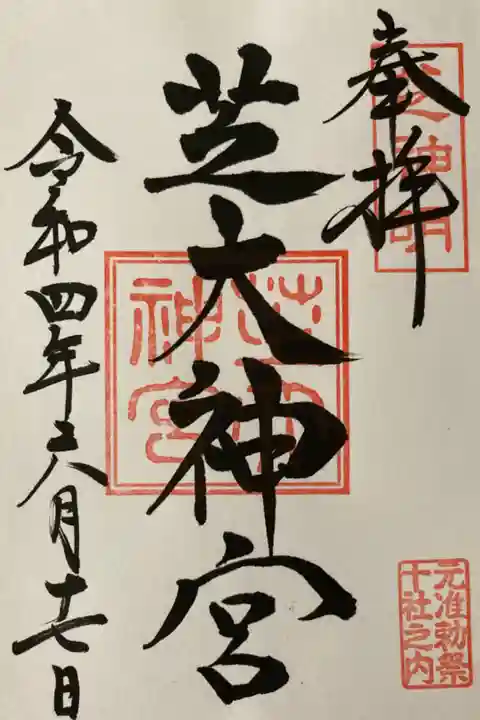 奉拝
芝神明
芝大神宮
芝大
神宮
令和四年六月十七日
元准勅祭
十社之内